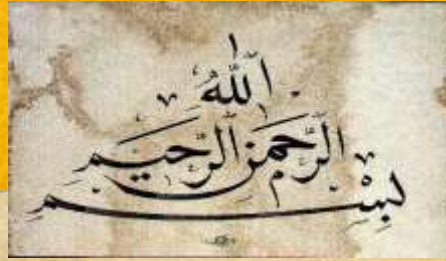 بِسْمِ
اللّٰهُ
الرَّحمٰنِ الرَّحِيمِ